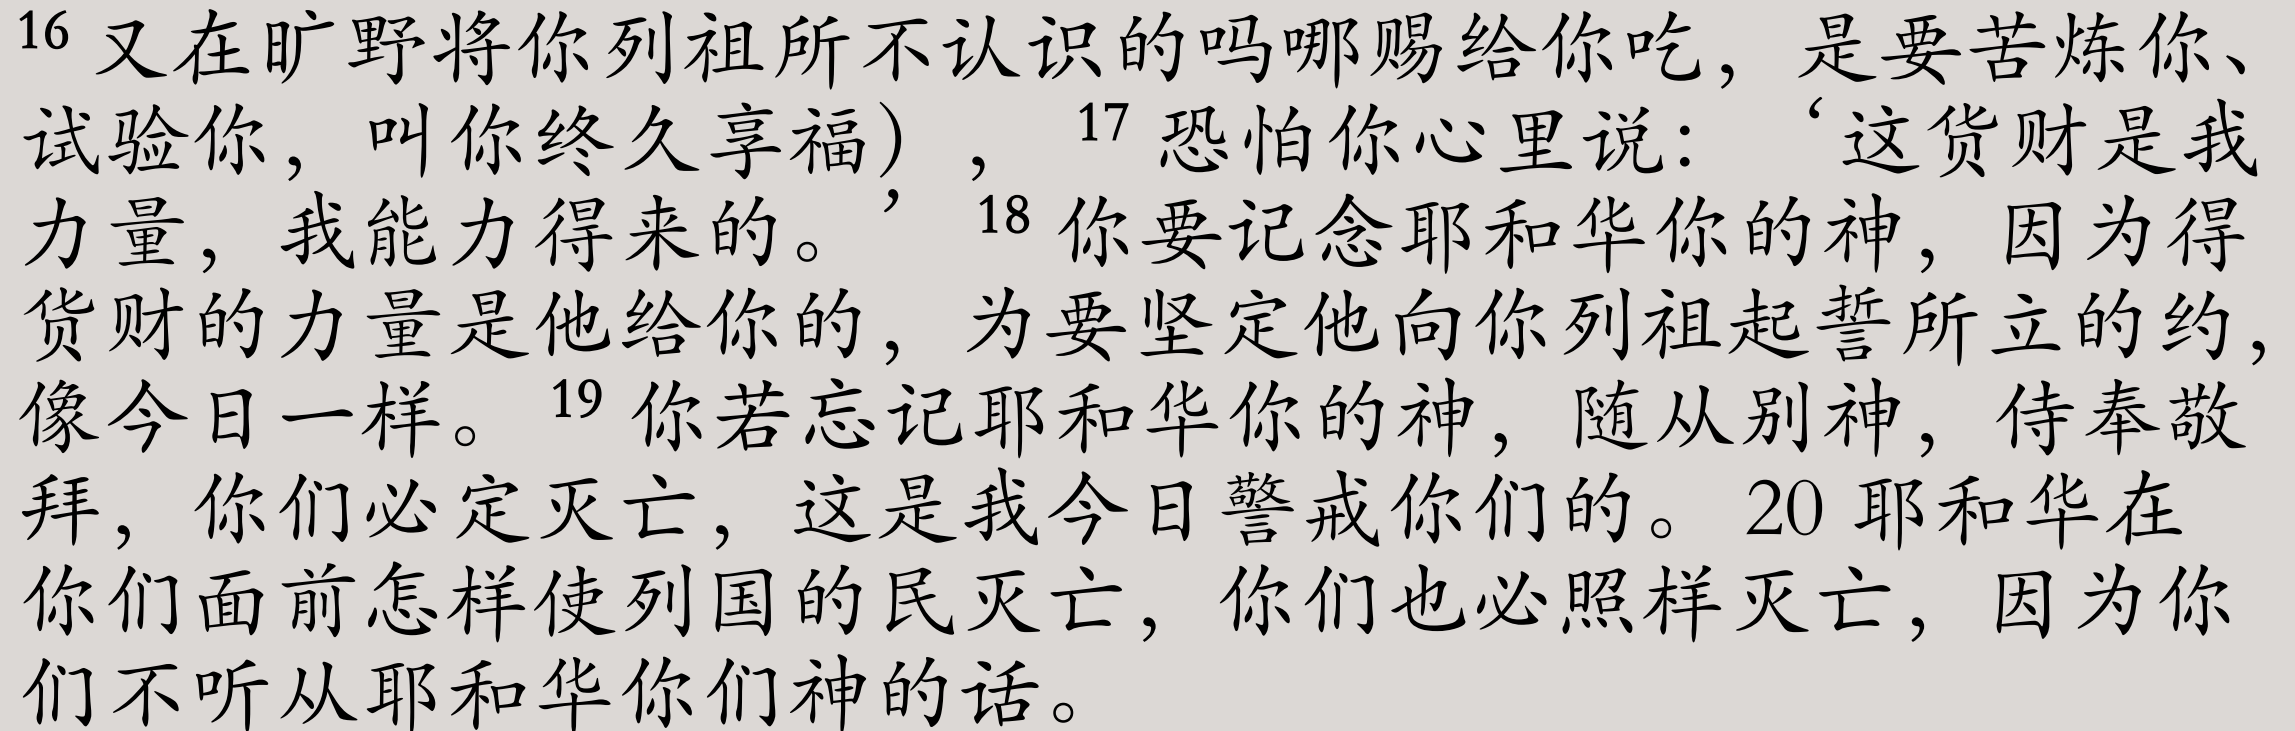 16 又在旷野将你列祖所不认识的吗哪赐给你吃，是要苦炼你、
试验你，叫你终久享福），17 恐怕你心里说：‘这货财是我
力量，我能力得来的。’18 你要记念耶和华你的神，因为得
货财的力量是他给你的，为要坚定他向你列祖起誓所立的约，
像今日一样。19 你若忘记耶和华你的神，随从别神，侍奉敬
拜，你们必定灭亡，这是我今日警戒你们的。20 耶和华在
你们面前怎样使列国的民灭亡，你们也必照样灭亡，因为你
们不听从耶和华你们神的话。